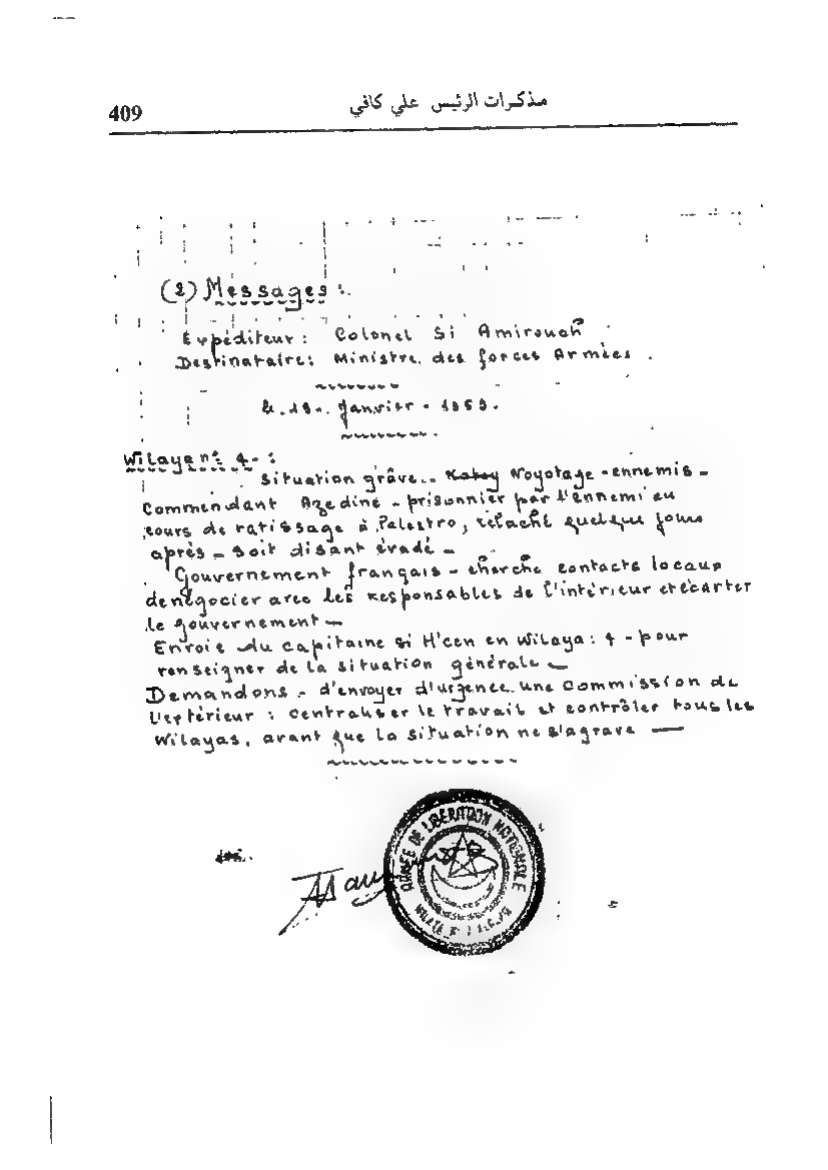 409
مذكرات الرئيس علي كافي
(2) Messages :.
Expéditeur : Colonel Si Amirouch
Destinataire : Ministre. des forces Armées .
le. 19. janvier - 1959.
Wilaya n: 4 - :
Situation grâve.. Noyotage - ennemis -
Commendant Azedine - prisonnier par l'ennemi au
cours de ratissage à Palestro, relaché quelque jours
après - soit disant évadé -
Gouvernement français - cherche contacts locaux
de négocier avec les Responsables de l'intérieur et écarter
le gouvernement -
Envoie du capitaine si H'cen en Wilaya : 4 - pour
renseigner de la situation générale -
Demandons - d'envoyer d'urgence une Commission de
l'extérieur : Centraliser le travail et contrôler tous les
Wilayas, avant que la situation ne s'agrave —
ARMEE DE LIBERATION NATIONALE
WILAYA